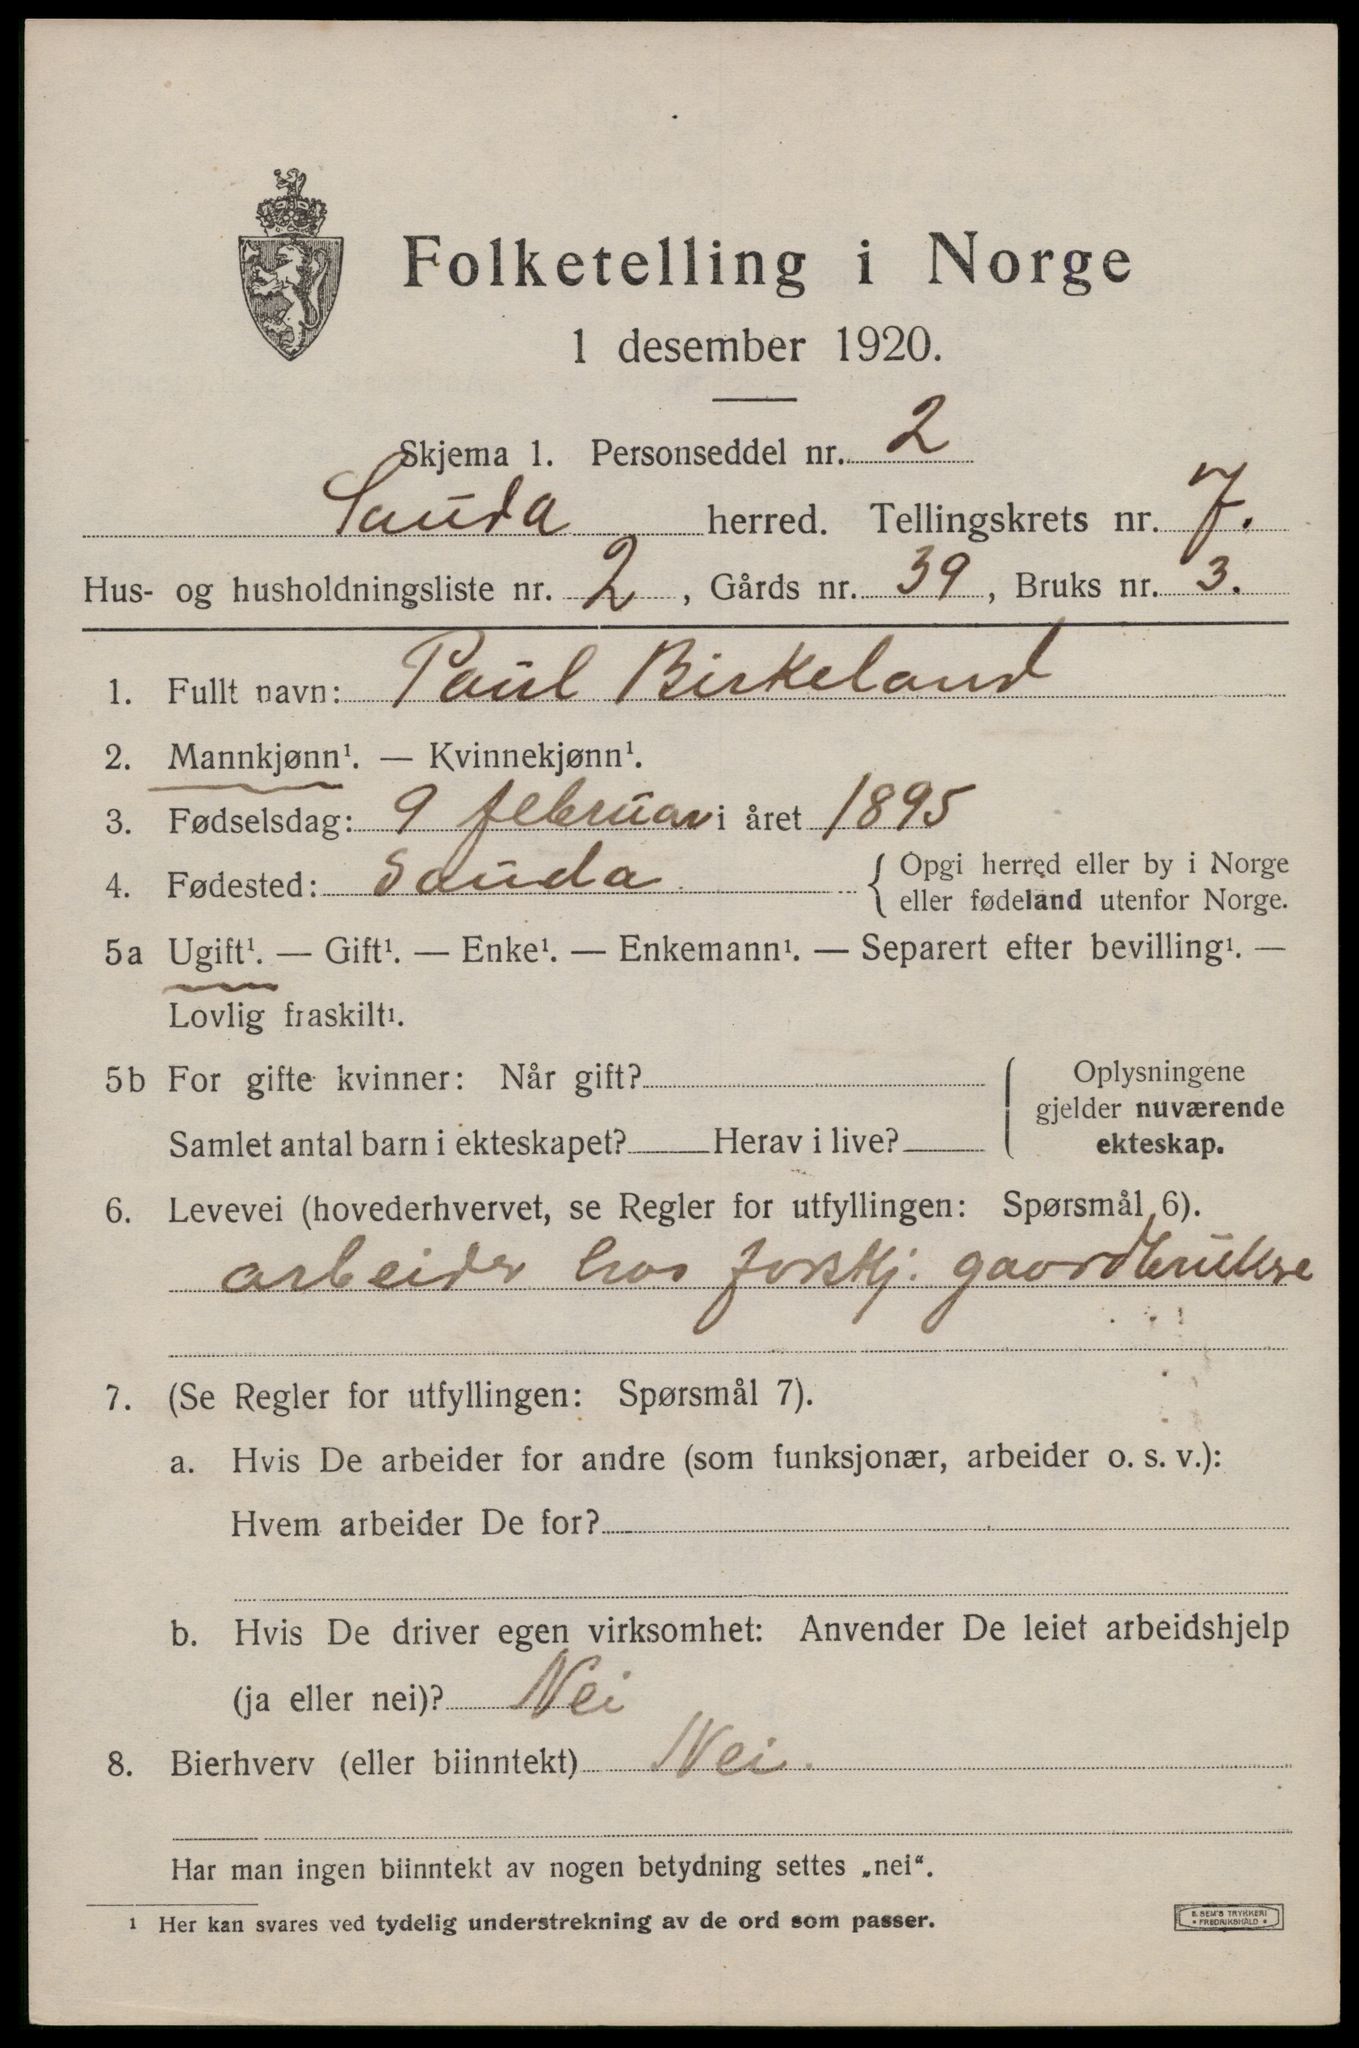 Folketelling i Norge
1 desember 1920.
Skjema 1. Personseddel nr. 2
Sauda herred. Tellingskrets nr. 7.
Hus- og husholdningsliste nr. 2, Gårds nr. 39, Bruks nr. 3.
1. Fullt navn: Paul Birkeland
2. Mannkjønn¹. — Kvinnekjønn¹.
3. Fødselsdag: 9 februar i året 1895
4. Fødested: Sauda { Opgi herred eller by i Norge
eller fødeland utenfor Norge.
5a Ugift¹. — Gift¹. — Enke¹. — Enkemann¹. — Separert efter bevilling¹. —
Lovlig fraskilt¹.
5b For gifte kvinner: Når gift?
Samlet antal barn i ekteskapet? Herav i live?
Oplysningene
gjelder nuværende
ekteskap.
6. Levevei (hovederhvervet, se Regler for utfyllingen: Spørsmål 6).
arbeider hos forskj. gaardbrukere
7. (Se Regler for utfyllingen: Spørsmål 7).
a. Hvis De arbeider for andre (som funksjonær, arbeider o. s. v.):
Hvem arbeider De for?
b. Hvis De driver egen virksomhet: Anvender De leiet arbeidshjelp
(ja eller nei)? Nei
8. Bierhverv (eller biinntekt) Nei.
Har man ingen biinntekt av nogen betydning settes „nei“.
¹ Her kan svares ved tydelig understrekning av de ord som passer.
E. SEM'S TRYKKERI
• FREDRIKSHALD •